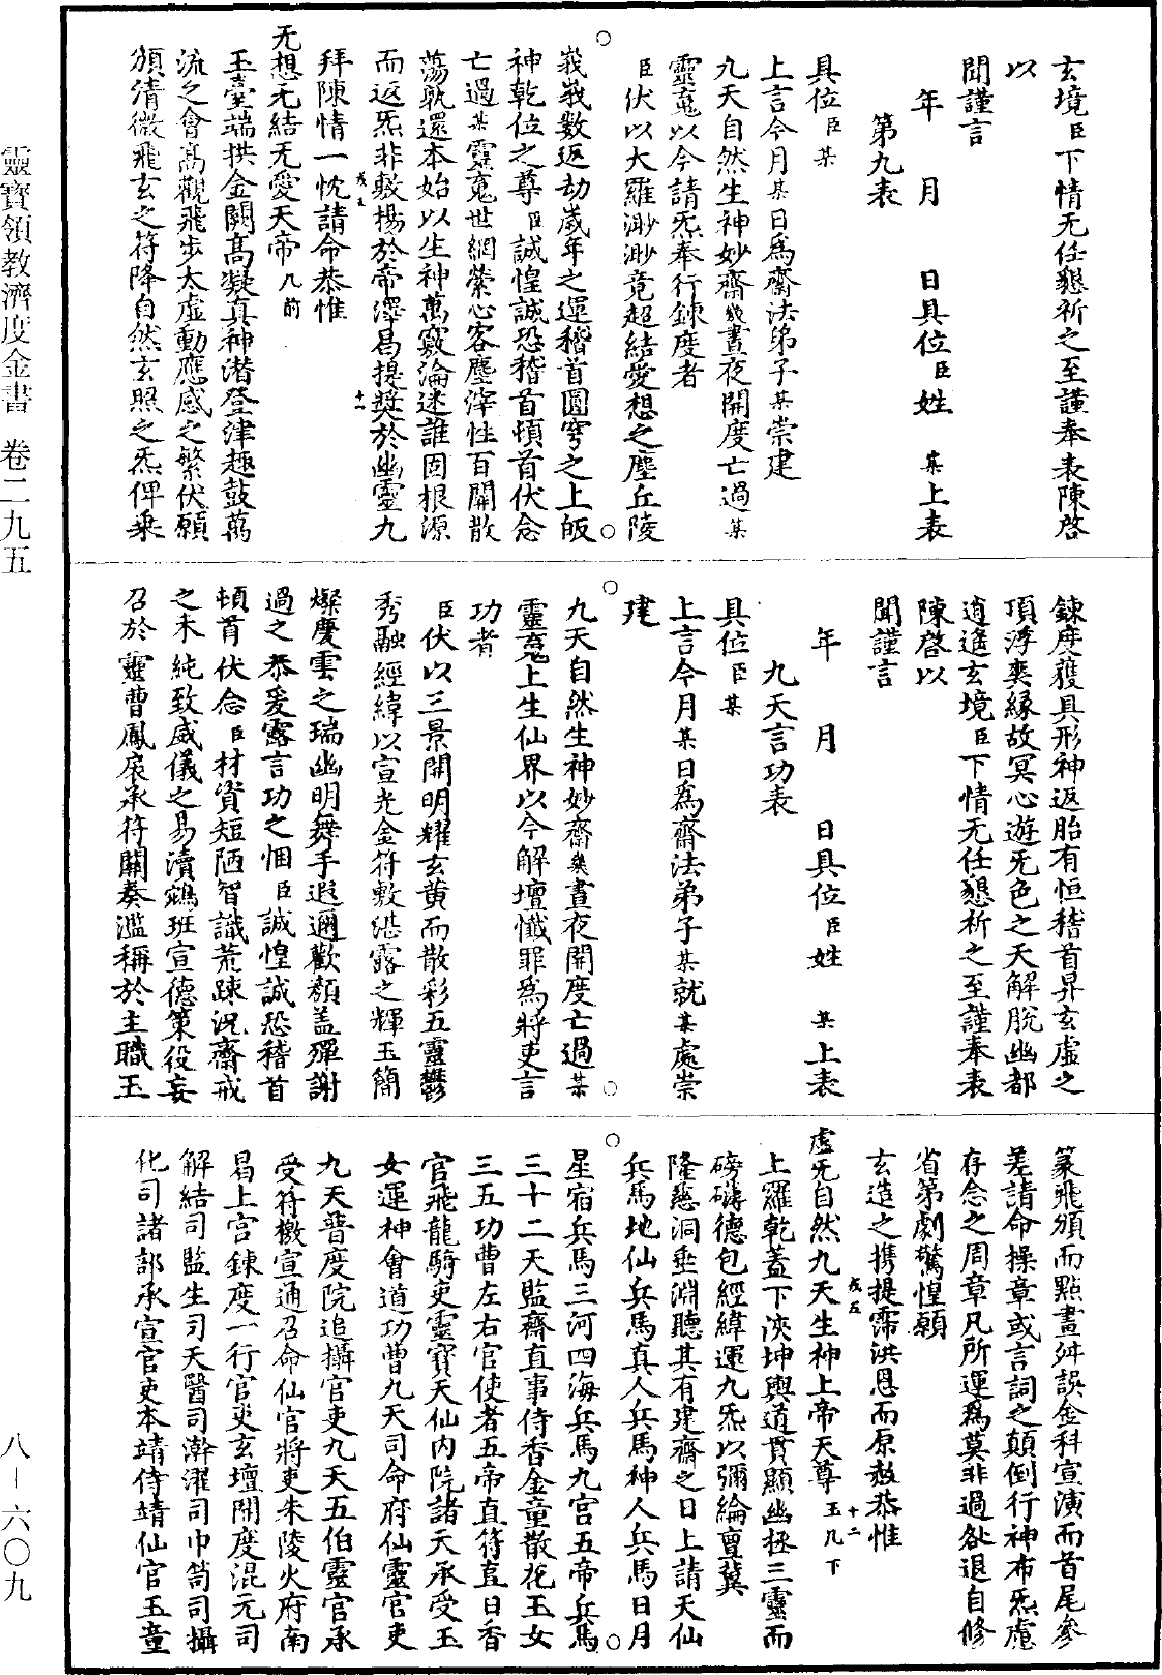 玄境臣下情无任懇祈之至謹奉表陳啓
以
聞謹言
年　月　　日具位臣姓　某上表
第九表
具位臣某
上言今月某日爲齋法弟子某崇建
九天自然生神妙齋幾晝夜開度亡過某
靈䰟以今請炁奉行鍊度者
臣伏以大羅渺渺竟超結愛想之塵丘陵
峩峩數返劫歲年之運稽首圓穹之上皈
神乾位之尊臣誠惶誠恐稽首頓首伏念
亡過某靈䰟世網縈心客塵滓性百關散
蕩孰還本始以生神萬竅淪迷誰固根源
而返炁非敷揚於帝澤曷提獎於幽靈九
拜陳情一忱請命恭惟
无想无結无愛天帝几前
玉臺端拱金闕高凝真神潛登津趣鼓萬
流之會高觀飛步太虛動應感之繁伏願
頒清微飛玄之符降自然玄照之炁俾乗
戌五
十一
鍊度蕿具形神返胎有恒稽首昇玄虛之
頂浮爽緣故冥心遊无色之天解脫幽都
逍遙玄境臣下情无任懇祈之至謹奉表
陳啓以
聞謹言
年　月　　日具位臣姓　某上表
九天言功表
具位臣某
上言今月某日爲齋法弟子某就某處崇
建
九天自然生神妙齋幾晝夜開度亡過某
靈䰟上生仙界以今解壇懺罪爲將吏言
功者
臣伏以三景開明耀玄黃而散彩五靈鬱
秀融經緯以宣光金符敷湛露之輝玉簡
燦慶雲之瑞幽明舞手遐邇歡顏盖殫謝
過之恭爰露言功之悃臣誠惶誠恐稽首
頓首伏念臣材資短陋智識荒踈況齋戒
之未純致威儀之易瀆鵷班宣德策役妄
召於靈曹鳳扆承符關奏濫稱於主職玉
篆飛頒而點畫舛誤金科宣演而首尾參
差請命操章或言詞之顛倒行神布炁慮
存念之周章凡所運爲莫非過咎退自修
省第劇驚惶願
玄造之攜提霈洪恩而原赦恭惟
虛无自然九天生神上帝天尊玉几下
上羅乾蓋下浹坤輿道貫顯幽拯三靈而
磅礴德包經緯運九炁以彌綸亶冀
隆慈洞垂淵聽其有建齋之日上請天仙
兵馬地仙兵馬真人兵馬神人兵馬日月
星宿兵馬三河四海兵馬九宫五帝兵馬
三十二天監齋直事侍香金童散花玉女
三五功曹左右官使者五帝直符直日香
官飛龍騎吏靈寶天仙内院諸天承受玉
女運神會道功曹九天司命府仙靈官吏
九天普度院追攝官吏九天五伯靈官承
受符檄宣通召命仙官將吏朱陵火府南
昌上宮鍊度一行官吏玄壇開度混元司
解結司監生司天醫司澣濯司巾笥司攝
化司諸部承宣官吏本靖侍靖仙官玉童
戌五
十二
靈寶領教濟度金書　卷二九五
八—六〇九